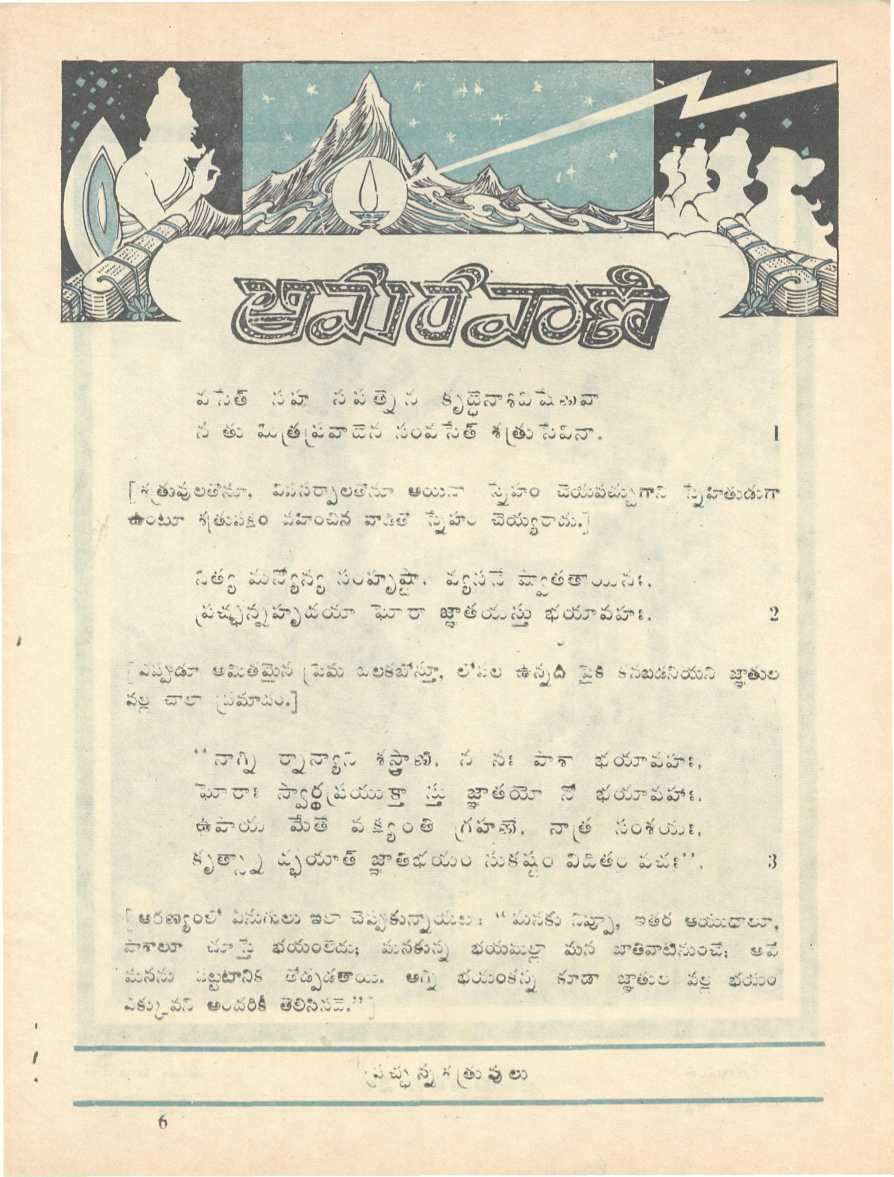 అమరవాణి
వసేత్ సహ సపత్నేన కృద్ధేనాశీవిషేణవా
న తు మిత్రప్రవాదేన సంవసేత్ శత్రుసేవినా. 1
[శత్రువులతోనూ, విషసర్పాలతోనూ అయినా స్నేహం చెయవచ్చుగాని స్నేహితుడుగా
ఉంటూ శత్రుపక్షం వహించిన వాడితో స్నేహం చెయ్యరాదు.]
నిత్య మన్యోన్య సంహృష్టా. వ్యసనే ష్వాతతాయినః.
ప్రచ్ఛన్నహృదయా ఘోరా జ్ఞాతయస్తు భయావహః. 2
[ఎప్పుడూ అమితమైన ప్రేమ ఒలకబోస్తూ, లోపల ఉన్నది పైకి కనబడనియని జ్ఞాతుల
వల్ల చాలా ప్రమాదం.]
“నాగ్ని ర్నాన్యాని శస్త్రాణి, న నః పాశా భయావహః,
ఘోరాః స్వార్థప్రయుక్తా స్తు జ్ఞాతయో నో భయావహాః.
ఉపాయ మేతే వక్ష్యంతి గ్రహణే, నాత్ర సంశయః,
కృత్స్నా ద్భయాత్ జ్ఞాతిభయం సుకష్టం విదితం వచః”. 3
[అరణ్యంలో ఏనుగులు ఇలా చెప్పుకున్నాయటః “మనకు నిప్పూ, ఇతర ఆయుధాలూ,
పాశాలూ చూస్తే భయంలేదు; మనకున్న భయమల్లా మన జాతివాటినుంచే; అవే
మనను పట్టటానికి తోడ్పడతాయి. అగ్ని భయంకన్న కూడా జ్ఞాతుల వల్ల భయం
ఎక్కువని అందరికీ తెలిసినదే.”]
ప్రచ్ఛన్నశత్రువులు
6